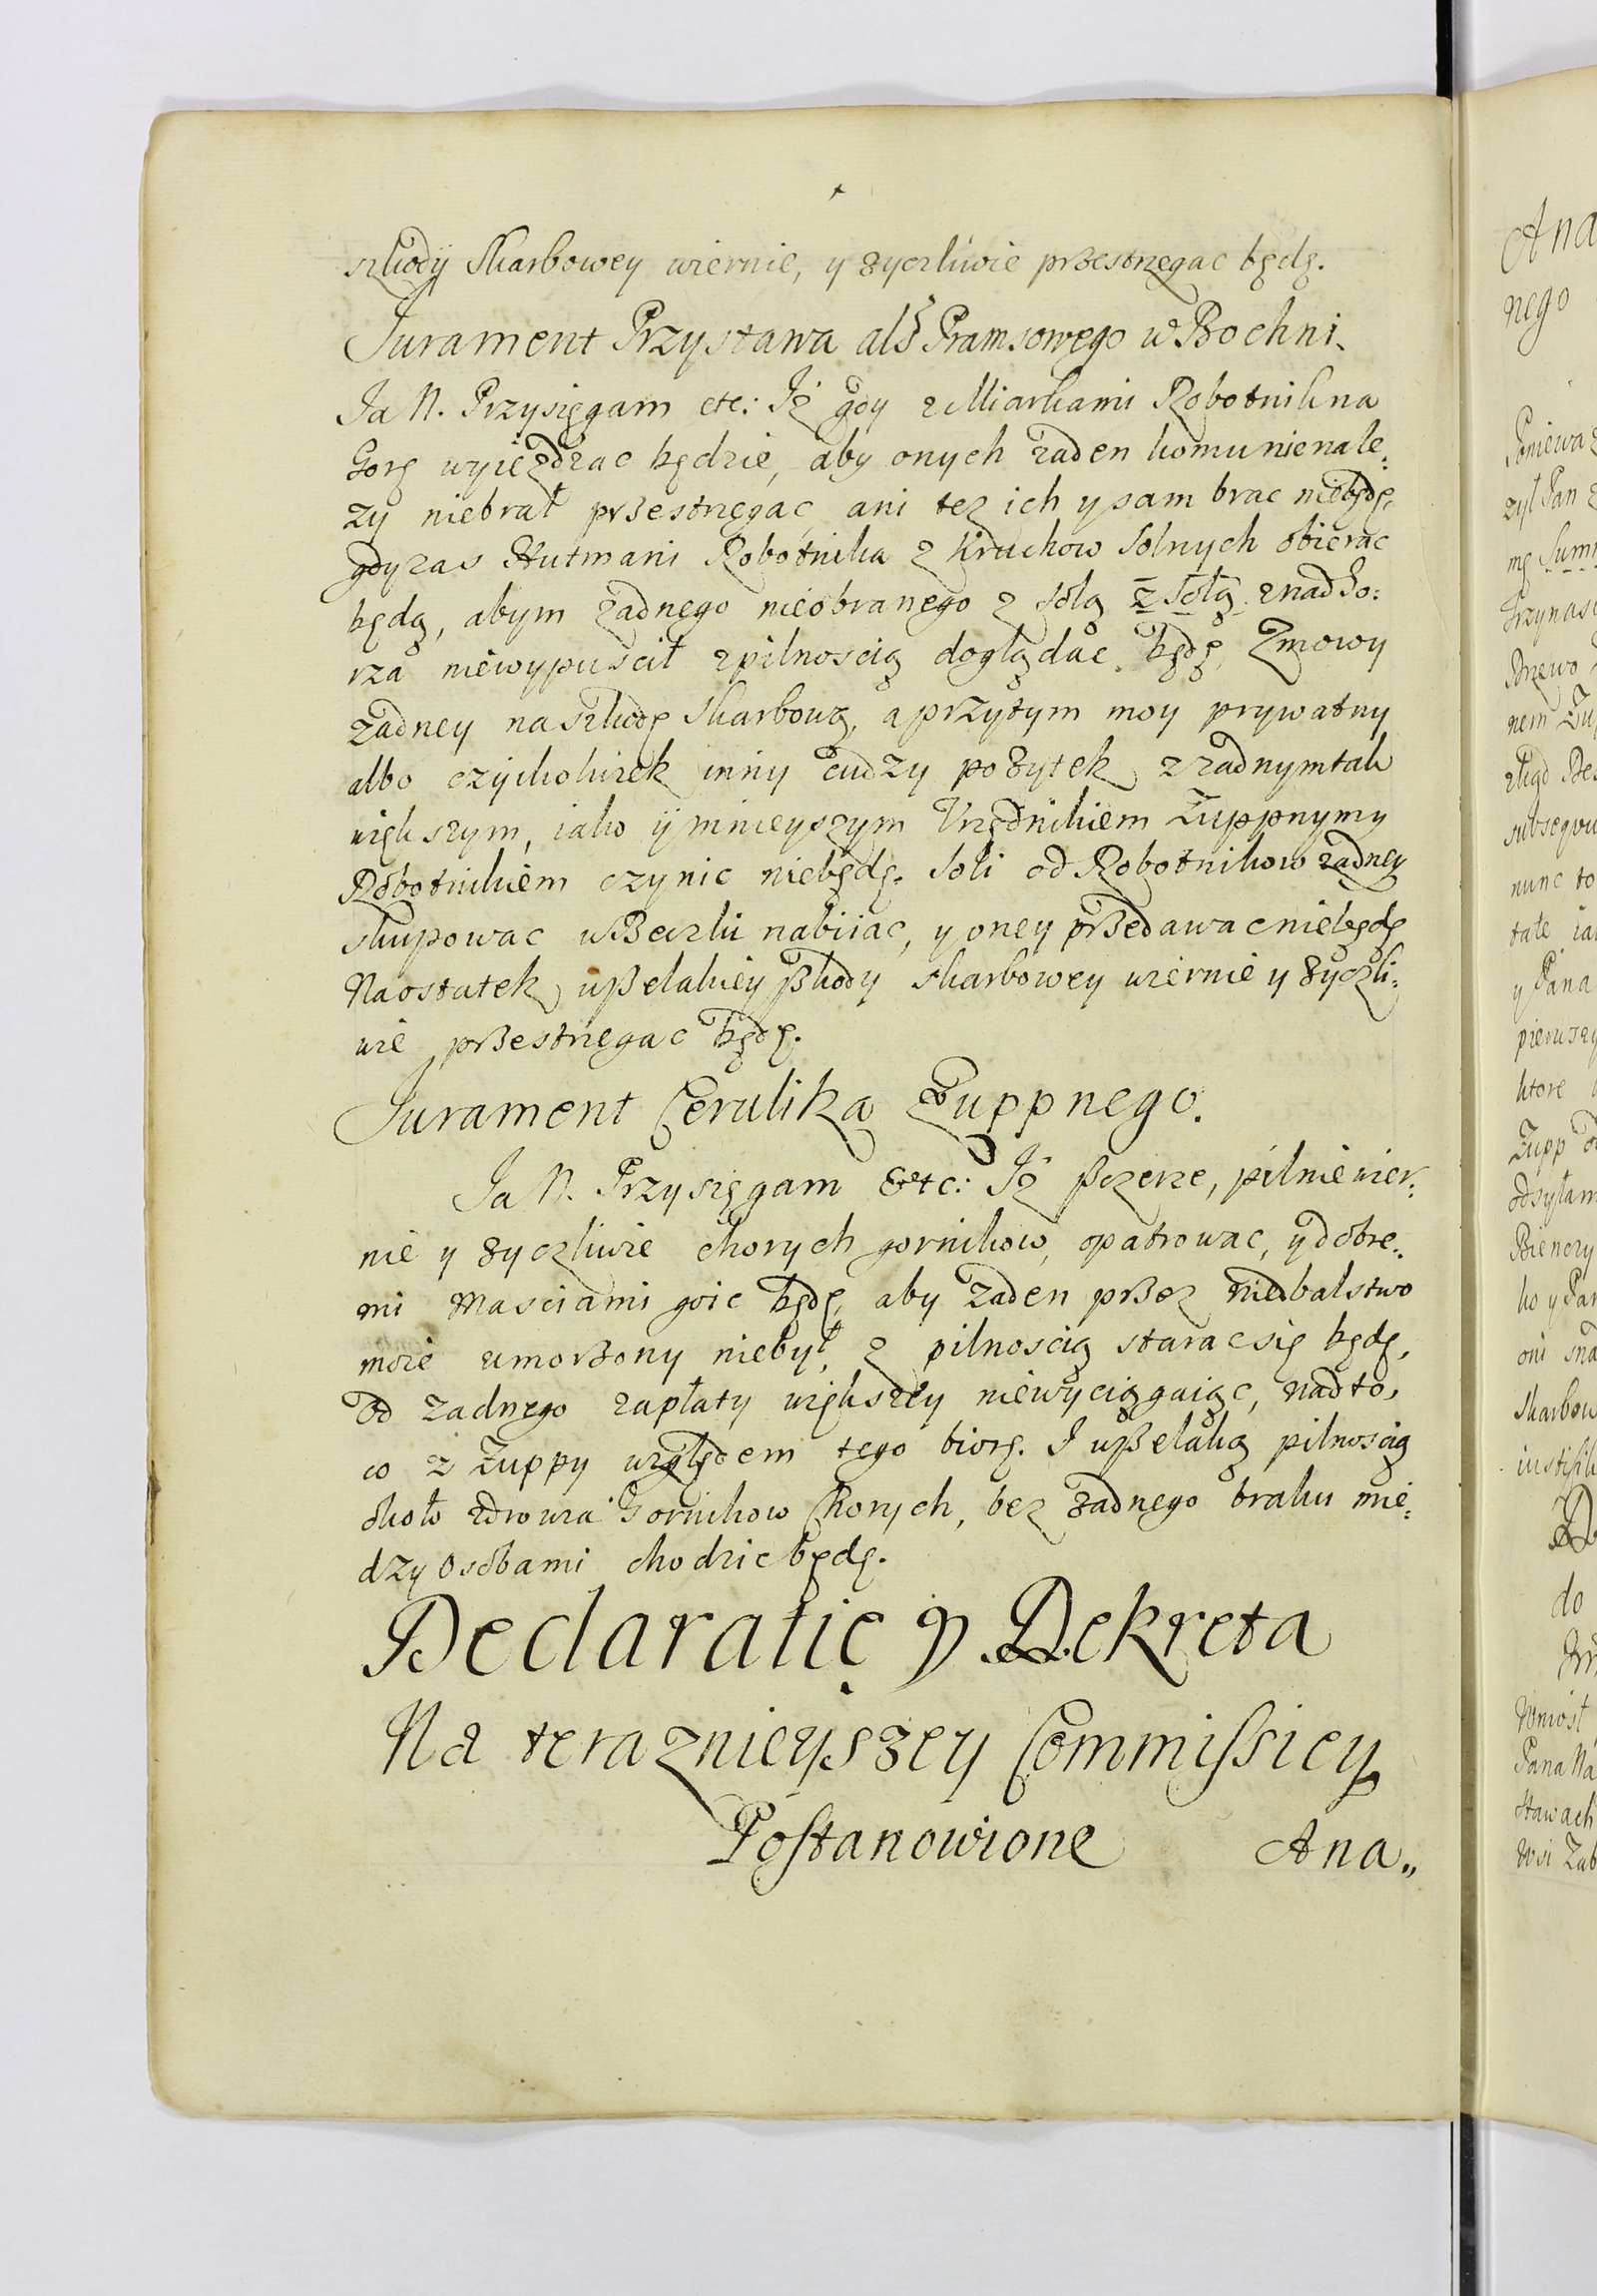 szkody Skarbowey wiernie, y zyczliwie przestrzegac będę.
Jurament Przystawa als Pramsowego w Bochni.
Ja N. Przysięgam etc: Iż gdy z Miarkami Robotnik na
Gorę wyiezdzac będzie, aby onych zaden komu nienale:
zy niebrał przestrzegac, ani tez ich y sam brac niebędę,
gdy zas Hutmani Robotnika z kruchow solnych obierac
będą, abym zadnego nieobranego z solą z solą z nadSo:
rza niewypuscił z pilnoscią doglądac będę, Zmowy
zadney na szkodę Skarbową, a przytym moy prywatny
albo czyikolwiek inny cudzy pozytek z zadnym tak
większym, iako y mnieyszym Urzędnikiem Zuppnym y
Robotnikiem czynic niebędę. Soli od Robotnikow zadney
skupowac w Beczki nabiiac, y oney przedawac niebędę
Na ostatek wszelakiey szkody skarbowey wiernie y zyczli:
wie przestrzegac będę.
Jurament Cerulika Zuppnego.
Ja N. Przysięgam &tc: Iż szczerze, pilnie wier:
nie y zyczliwie chorych gornikow, opatrowac, y dobre:
mi Masciami goic będę, aby zaden przez niedbalstwo
moie umorzony niebył, z pilnoscią starac się będę,
od zadnego zapłaty większey niewyciągaiąc, nad to,
co z Zuppy względem tego biorę. I wszelaką pilnoscią
około zdrowia Gornikow Chorych, bez zadnego braku mie:
dzy osobami chodzic będę.
Declaratię y Dekreta
Na teraznieyszey Commissiey
Postanowione
Ana„
Ana
nego
Poniewa
zył Pan
mę Summ
nem Zup
subsequ
nunc to
tale ia
y Pana
pierwszy
ktore
Zupp
odsyłam
ko y Pan
oni
Skarbow
do
Wniosł
Pana Na
stawach
Wsi Zab